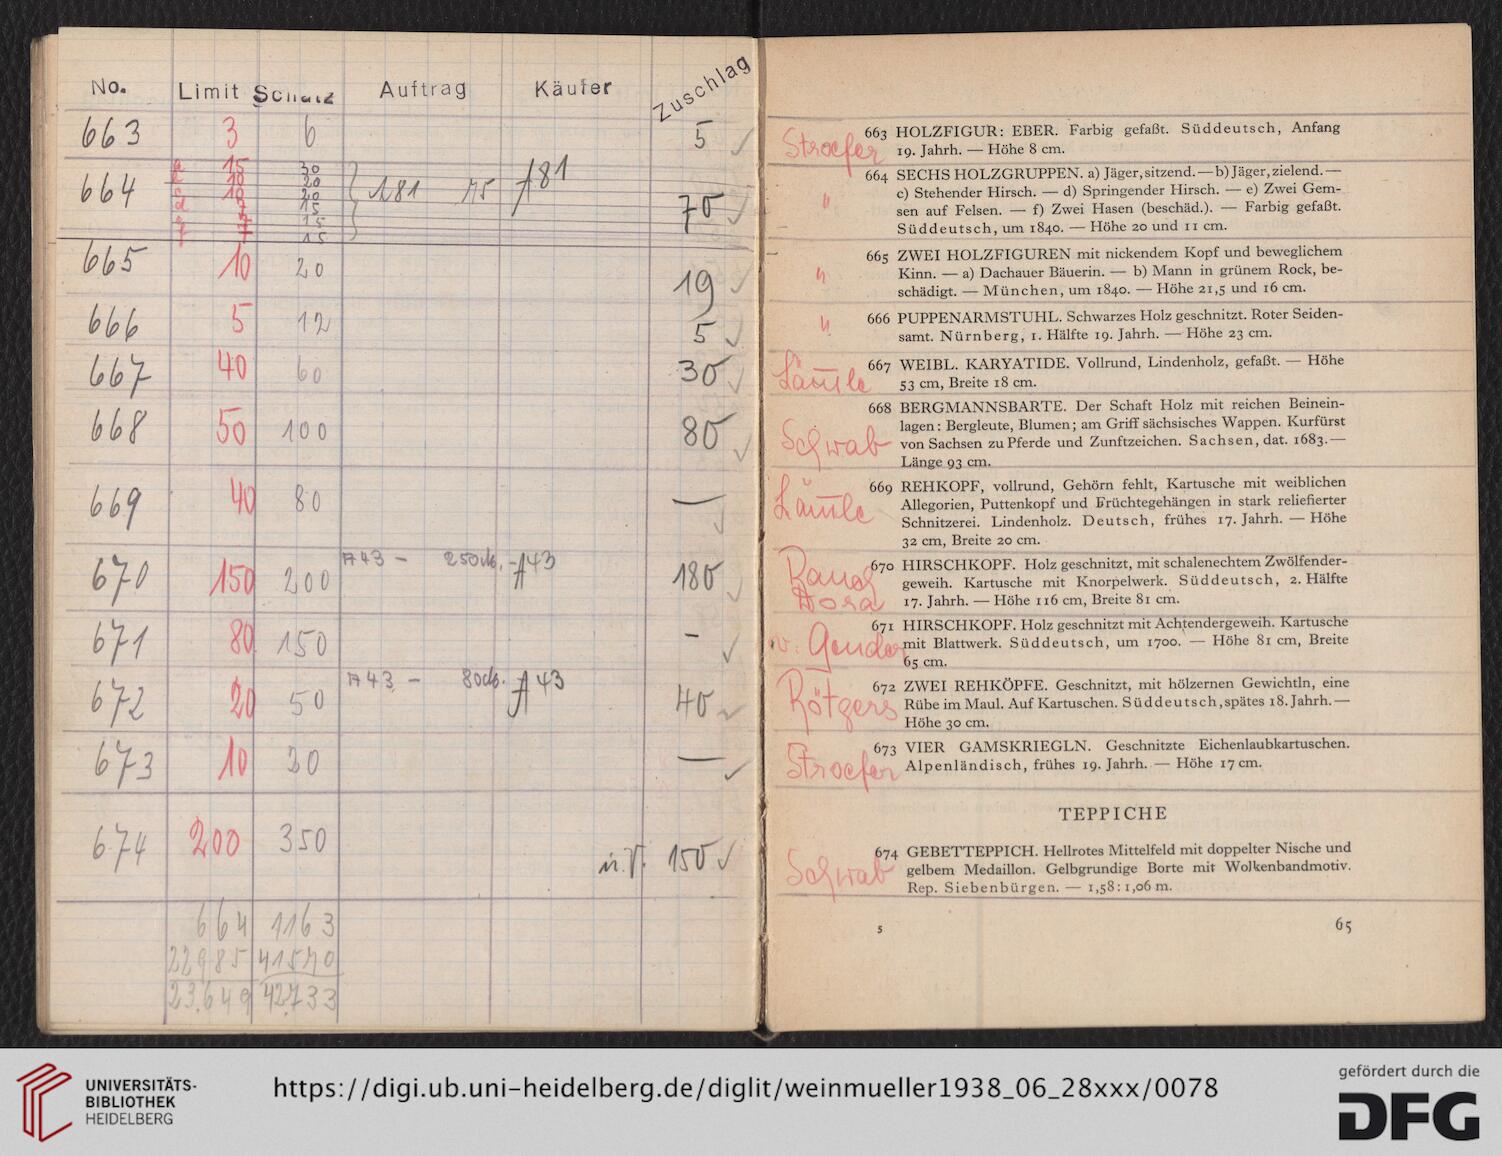 No. Limit Schätz Auftrag Käufer Zuschlag
663 3 6 5
664 a 15 30
10 20
c 10 20
d 7 15
7 15
f 7 15
} 181 75 A81 70
665 10 20 19
666 5 12 5
667 40 60 30
668 50 100 80
669 40 80 —
670 150 200 A43 – 250 A43 180
671 80 150 –
672 20 50 A43 – 80 A43 40
673 10 20 —
674 200 350 u.V. 150
664 1163
22985 41570
23.649 42.733
Stroefer
663 HOLZFIGUR: EBER. Farbig gefaßt. Süddeutsch, Anfang
19. Jahrh. — Höhe 8 cm.
"
664 SECHS HOLZGRUPPEN. a) Jäger, sitzend. — b) Jäger, zielend. —
c) Stehender Hirsch. — d) Springender Hirsch. — e) Zwei Gem-
sen auf Felsen. — f) Zwei Hasen (beschäd.). — Farbig gefaßt.
Süddeutsch, um 1840. — Höhe 20 und 11 cm.
"
665 ZWEI HOLZFIGUREN mit nickendem Kopf und beweglichem
Kinn. — a) Dachauer Bäuerin. — b) Mann in grünem Rock, be-
schädigt. — München, um 1840. — Höhe 21,5 und 16 cm.
"
666 PUPPENARMSTUHL. Schwarzes Holz geschnitzt. Roter Seiden-
samt. Nürnberg, 1. Hälfte 19. Jahrh. — Höhe 23 cm.
Lämle
667 WEIBL. KARYATIDE. Vollrund, Lindenholz, gefaßt. — Höhe
53 cm, Breite 18 cm.
Schwab
668 BERGMANNSBARTE. Der Schaft Holz mit reichen Beinein-
lagen: Bergleute, Blumen; am Griff sächsisches Wappen. Kurfürst
von Sachsen zu Pferde und Zunftzeichen. Sachsen, dat. 1683. —
Länge 93 cm.
Lämle
669 REHKOPF, vollrund, Gehörn fehlt, Kartusche mit weiblichen
Allegorien, Puttenkopf und Früchtegehängen in stark reliefierter
Schnitzerei. Lindenholz. Deutsch, frühes 17. Jahrh. — Höhe
32 cm, Breite 20 cm.
Dora
670 HIRSCHKOPF. Holz geschnitzt, mit schalenechtem Zwölfender-
geweih. Kartusche mit Knorpelwerk. Süddeutsch, 2. Hälfte
17. Jahrh. — Höhe 116 cm, Breite 81 cm.
v.
671 HIRSCHKOPF. Holz geschnitzt mit Achtendergeweih. Kartusche
mit Blattwerk. Süddeutsch, um 1700. — Höhe 81 cm, Breite
65 cm.
Rötgers
672 ZWEI REHKÖPFE. Geschnitzt, mit hölzernen Gewichtln, eine
Rübe im Maul. Auf Kartuschen. Süddeutsch, spätes 18. Jahrh. —
Höhe 30 cm.
Stroefer
673 VIER GAMSKRIEGLN. Geschnitzte Eichenlaubkartuschen.
Alpenländisch, frühes 19. Jahrh. — Höhe 17 cm.
TEPPICHE
Schwab
674 GEBETTEPPICH. Hellrotes Mittelfeld mit doppelter Nische und
gelbem Medaillon. Gelbgrundige Borte mit Wolkenbandmotiv.
Rep. Siebenbürgen. — 1,58:1,06 m.
5 65
UNIVERSITÄTS-
BIBLIOTHEK
HEIDELBERG
https://digi.ub.uni-heidelberg.de/diglit/weinmueller1938_06_28xxx/0078
gefördert durch die
DFG